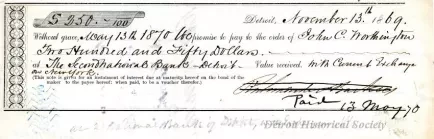 $ 250.— 100 Detroit, November 13th 1869.
Without grace, May 13th 1870 We promise to pay to the order of John C. Worthington
Two Hundred and Fifty Dollars.
at The Second National Bank - Detroit Value received. with Current Exchange
on New York.
(This note is given for an instalment of interest due at maturity hereof on the bond of the
maker to the payee hereof; when paid, to be a voucher therefor.)
Paid 13 May 70
Detroit Historical Society